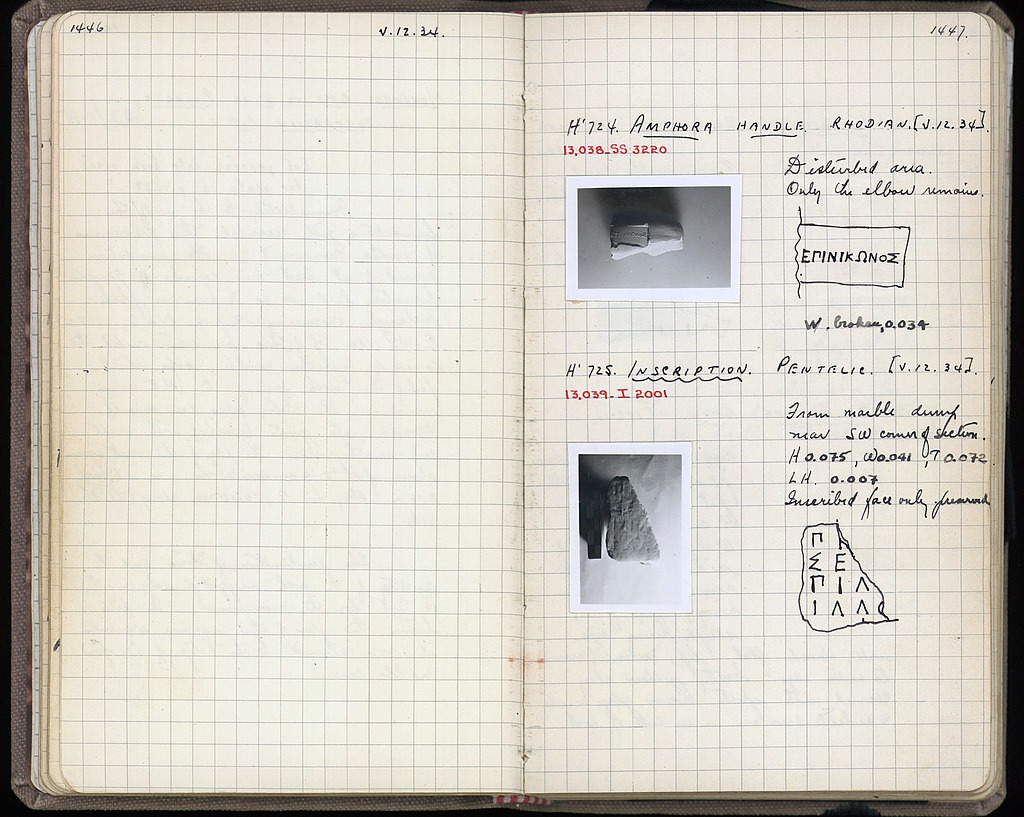 1446
V.12.34.
1447.
H'724. AMPHORA HANDLE. RHODIAN. [V.12.34].
13,038-SS 3220
Disturbed area.
Only the elbow remains.
ΕΠΙΝΙΚΩΝΟΣ
W. broken, 0.034
H'725. INSCRIPTION. PENTELIC. [V.12.34].
13,039-I 2001
From marble dump
near SW corner of section.
H 0.075, W 0.041, T 0.072
LH. 0.007
Inscribed face only preserved
Π Η
Σ Ε
Π Ι Λ
Ι Λ Λ